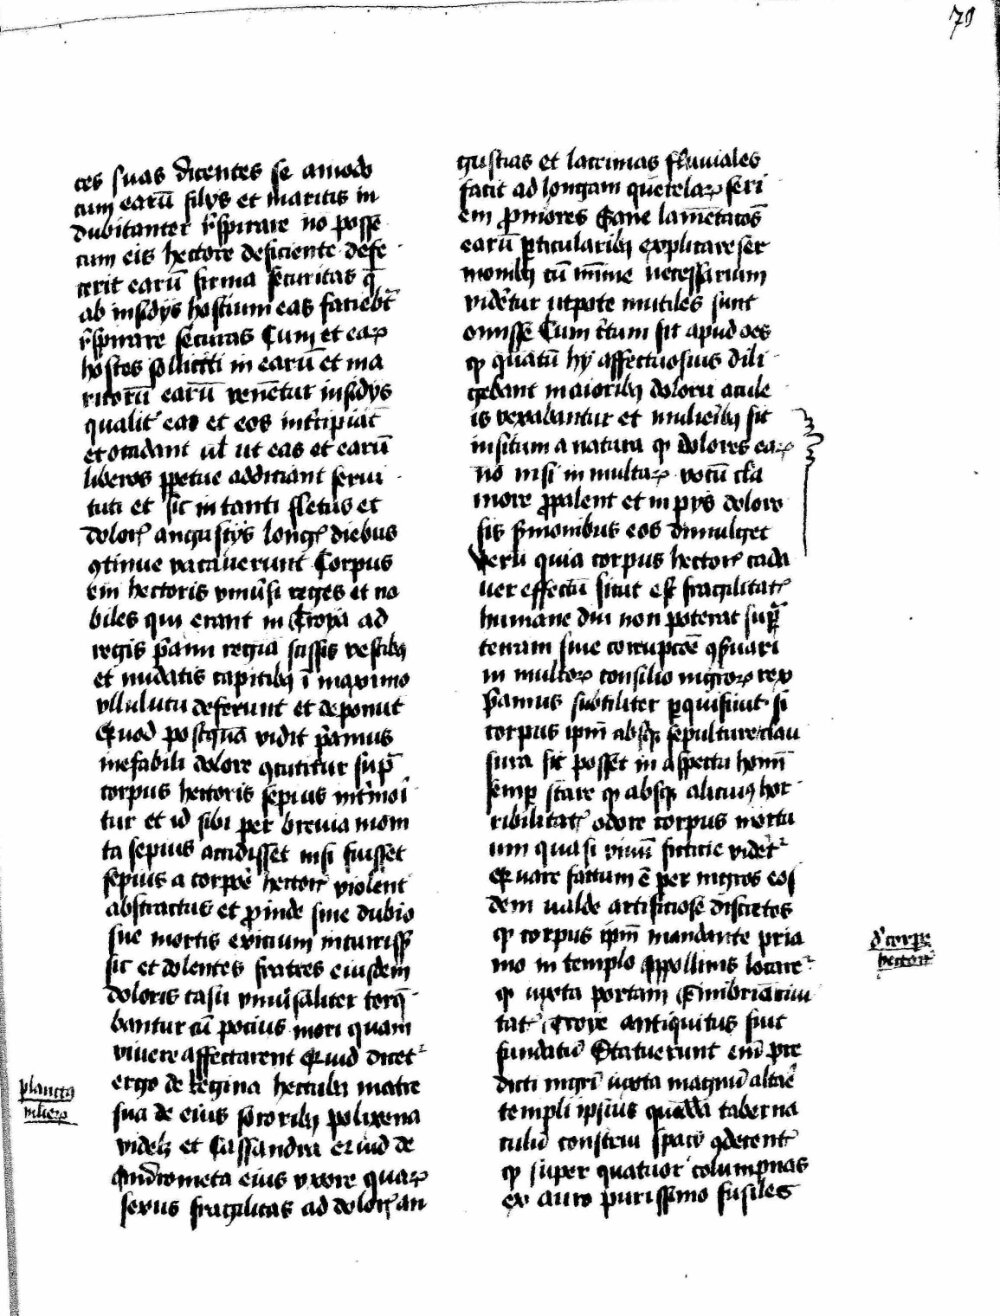 70
ces suas dicentes se amodo
cum earū filijs et maritis in
dubitanter r̄spirare nō posse
cum eis hectore deficiente defe
cerit earū firma securitas q̄
ab insidijs hostium eas faciebāt
r̄spirare securas Cum et eaꝝ
hostes solliciti in earū et ma
ritorū earū veñentur insidijs
qualitͬ eas et eos int̄cipiāt
et occidant ul̄ ut eas et earū
liberos ꝑpetue addicant servi
tuti et sic in tanti fletus et
dolorꝭ angustijs longꝭ diebus
ꝯtinue vacauerunt Corpus
em hectoris vniūsi reges et no
biles qui erant in Troya ad
regis p̄ami regiā scissis vestibꝫ
et nudatis capitibꝫ ī maximo
vllulutu deferunt et deponūt
Quod postquā vidit p̄amus
inefabili dolore ꝯcutitur sup̄
corpus hectoris sepius int̄moi
tur et id sibi per brevia mom
ta sepius accidisset nisi fuisset
sepius a corpoē hectorꝭ violent
abstractus et ꝓinde sine dubio
sue mortis exicium incurriss̄
sic et dolentes fratres eiusdem
doloris casu vniūsaliter torq̄
bantur cū pocius mori quam
viuere affectarent Quid dicetͬ
ergo de regina heccuba matre
sua de eius sororibꝫ polixena
videlꝫ et Cassandra Quid de
Andrometa eius vxore quaꝝ
sexus fragilitas ad dolorꝭ an
gustias et lacrimas fluviales
facit ad longam querelaꝝ seri
em ꝓniores Sane lamētacōs
earū ꝑticularibꝫ explicare ser
monibꝫ cū mīme necessarium
vidētur utpote inutiles sunt
omisse Cum c̄tum sit apud oēs
ꝙ quātū hij affectuosius dili
gebant maioribꝫ doloru acule
is vexabantur et muliēibꝫ sit
insitum a natura ꝙ dolores eaꝝ
nō nisi in multaꝝ vocū cla
more ꝓpalent et in pijs doloro
sis s̄monibus eos divulget
Verū quia corpus hectorꝭ cada
uer effectū sicut est fragilitatꝭ
humane diu non poterat sup̄
terram sine corrupcōe ꝯs̄uari
in multoꝝ consilio mgr̄oꝝ rex
p̄amus subtiliter ꝑquisiuit si
corpus ipm̄ absqꝫ sepulture clau
sura sic posset in aspectu homi
semꝑ stare ꝙ absqꝫ alicuiꝰ hor
ribilitatꝭ odore corpus mortu
um quasi vivū ficticie videtͬ
Quare factum ē per mgr̄os eos
dem valde artificiose discretos
ꝙ corpus ipm̄ mandante pria
mo in templo Appollinis locaretͬ
ꝙ iuxta portam Timbriā ciui
tatꝭ Troye antiquitus fuit
fundatū Statuerunt em̄ pre
dicti mgr̄i iuxta magnū altaē
templi ipsius quoddā taberna
culū construi spacio ꝯdecentͬ
ꝙ super quatuor columpnas
ex auro purissimo fusiles
planctꝰ
mlieꝝ
d' corpe
hectorꝭ